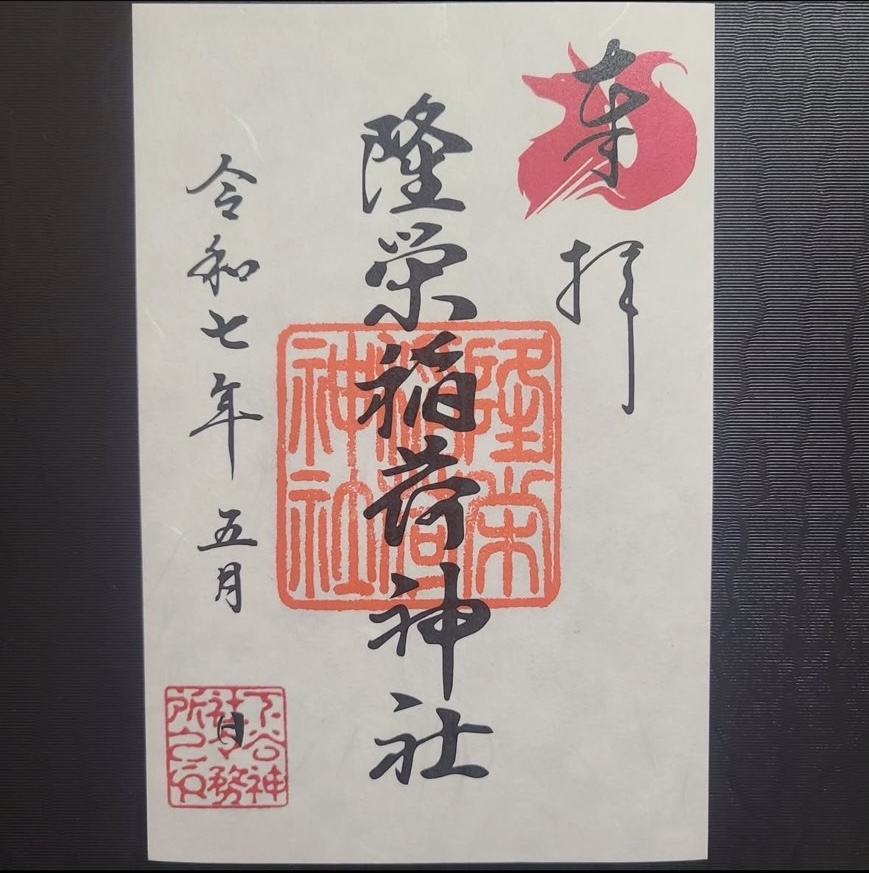 奉拝
隆栄稲荷神社
隆栄稲荷神社
令和七年五月 日
下谷神社社務所之印